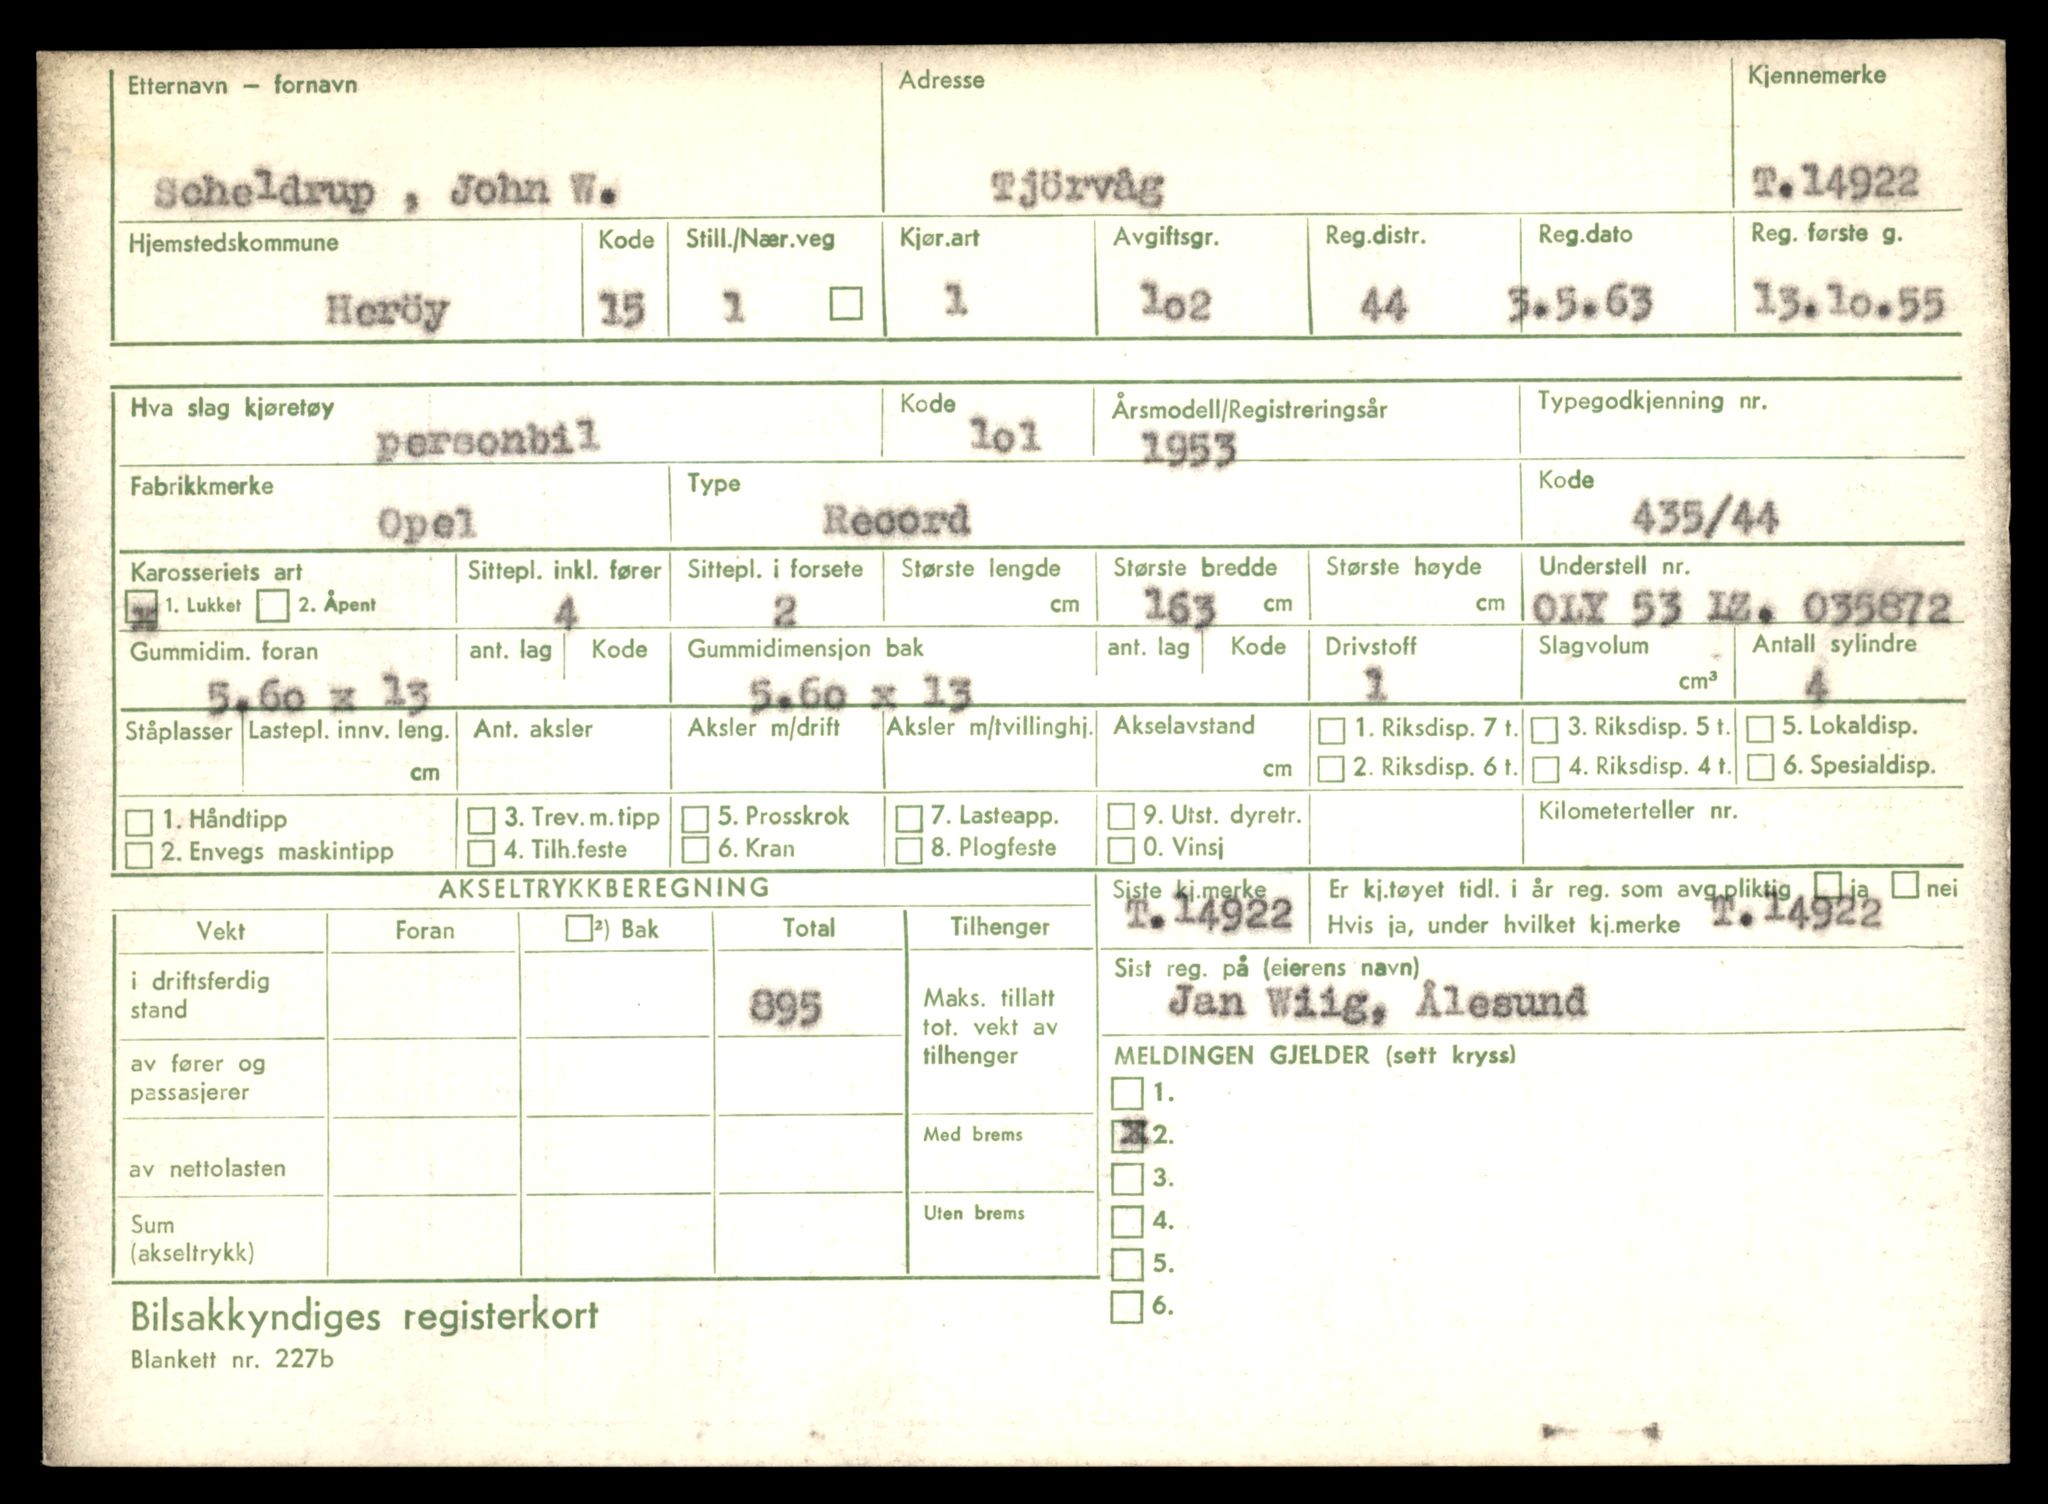 Etternavn – fornavn Adresse Kjennemerke
Scheldrup , John W. Tjörvåg T.14922
Hjemstedskommune Kode Still./Nær.veg Kjør.art Avgiftsgr. Reg.distr. Reg.dato Reg. første g.
Heröy 15 1 1 1o2 44 3.5.63 13.1o.55
Hva slag kjøretøy Kode Årsmodell/Registreringsår Typegodkjenning nr.
personbil 1o1 1953
Fabrikkmerke Type Kode
Opel Record 435/44
Karosseriets art Sittepl. inkl. fører Sittepl. i forsete Største lengde Største bredde Største høyde Understell nr.
x 1. Lukket 2. Åpent 4 2 cm 163 cm cm OLY 53 LZ. 035872
Gummidim. foran ant. lag Kode Gummidimensjon bak ant. lag Kode Drivstoff Slagvolum Antall sylindre
5.6o x 13 5.6o x 13 1 cm³ 4
Ståplasser Lastepl. innv. leng. Ant. aksler Aksler m/drift Aksler m/tvillinghj. Akselavstand 1. Riksdisp. 7 t. 3. Riksdisp. 5 t. 5. Lokaldisp.
cm cm 2. Riksdisp. 6 t. 4. Riksdisp. 4 t. 6. Spesialdisp.
1. Håndtipp 3. Trev. m. tipp 5. Prosskrok 7. Lasteapp. 9. Utst. dyretr. Kilometerteller nr.
2. Envegs maskintipp 4. Tilh.feste 6. Kran 8. Plogfeste 0. Vinsj
AKSELTRYKKBEREGNING Siste kj.merke Er kj.tøyet tidl. i år reg. som avg.pliktig ja nei
T.14922 Hvis ja, under hvilket kj.merke T.14922
Vekt Foran ²) Bak Total Tilhenger
Sist reg. på (eierens navn)
Jan Wiig, Ålesund
i driftsferdig
stand 895
Maks. tillatt
tot. vekt av
tilhenger
MELDINGEN GJELDER (sett kryss)
av fører og
passasjerer
1.
Med brems x 2.
av nettolasten 3.
Uten brems 4.
Sum
(akseltrykk)
5.
6.
Bilsakkyndiges registerkort
Blankett nr. 227b